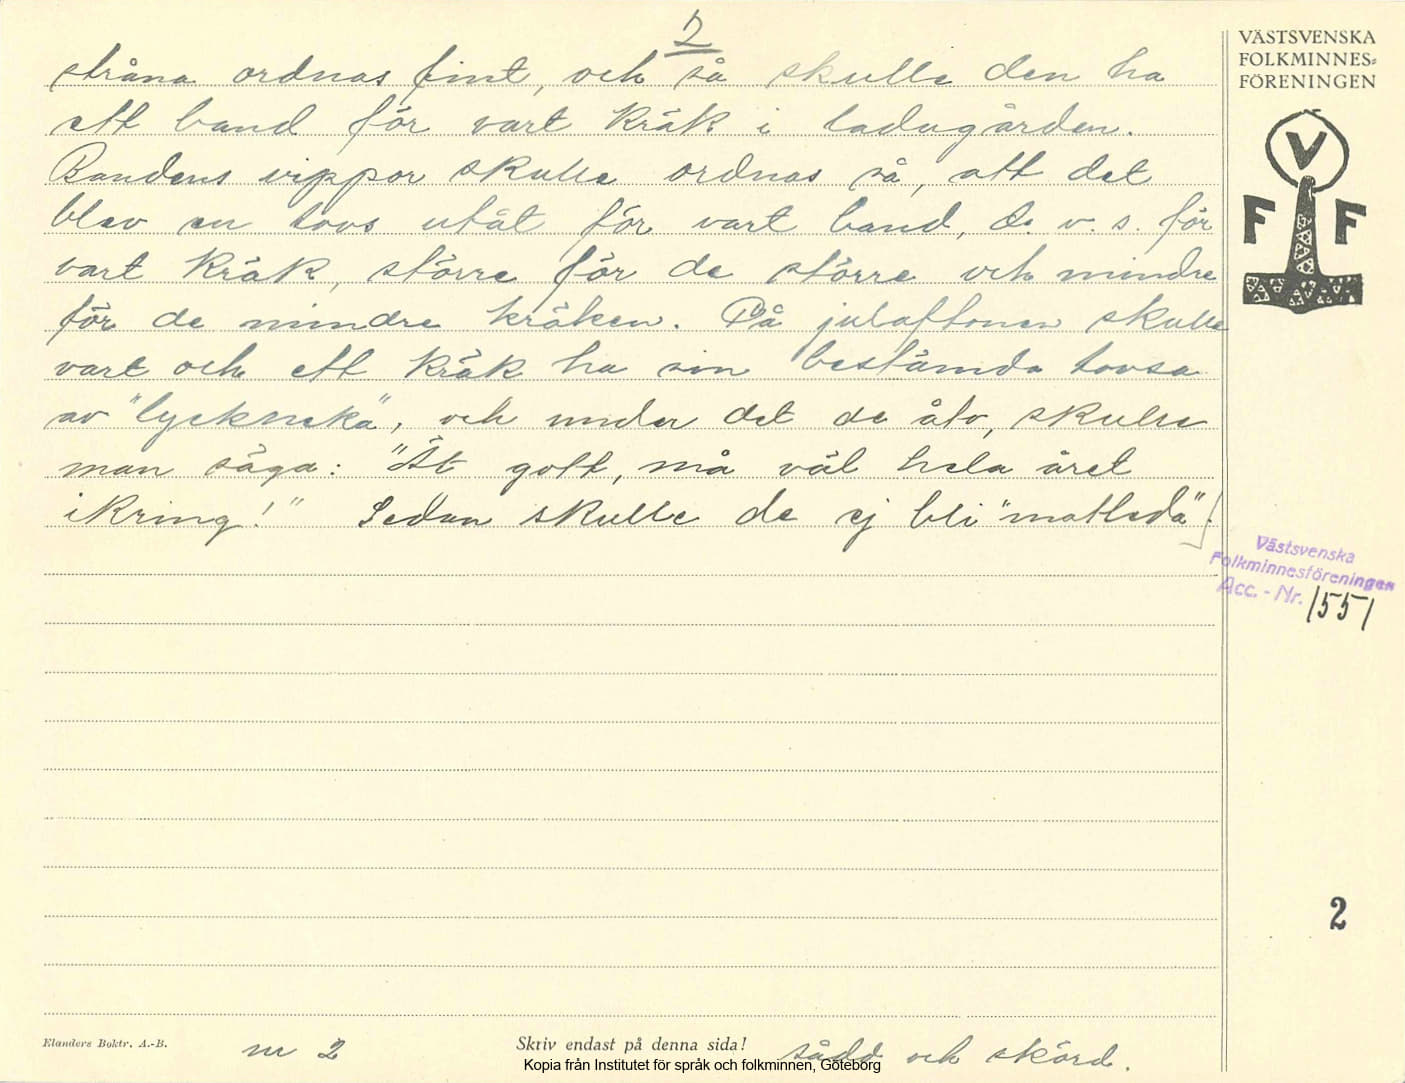 2
stråna ordnas fint, och så skulle den ha
ett band för vart kräk i ladugården.
Bandens vippor skulle ordnas så, att det
blev en tovs utåt för vart band, d. v. s. för
vart kräk, större för de större och mindre
för de mindre kräken. På julaftonen skulle
vart och ett kräk ha sin bestämda tovsa
av "lyckneka", och under det de åto, skulle
man säga: "Ät gott, må väl hela året
ikring!" Sedan skulle de ej bli "matleda".
VÄSTSVENSKA
FOLKMINNES-
FÖRENINGEN
V
F F
Västsvenska
Folkminnesföreningen
Acc. - Nr. 1551
2
Elanders Boktr. A.-B.
nr 2
Skriv endast på denna sida!
sådd och skörd.
Kopia från Institutet för språk och folkminnen, Göteborg